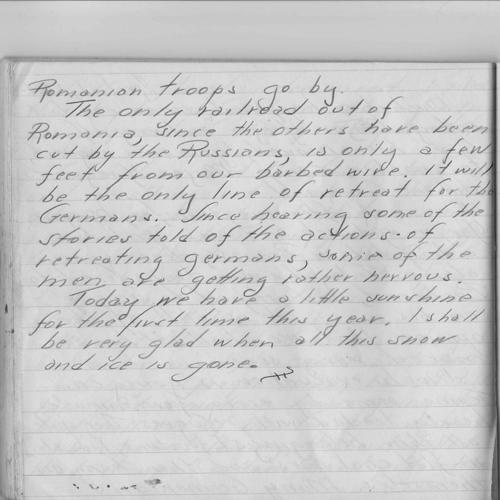 Romanian troops go by.
The only railroad out of
Romania, since the others have been
cut by the Russians, is only a few
feet from our barbed wire. It will
be the only line of retreat for the
Germans. Since hearing some of the
stories told of the actions of
retreating germans, some of the
men are getting rather nervous.
Today we have a little sunshine
for the first time this year. I shall
be very glad when all this snow
and ice is gone.